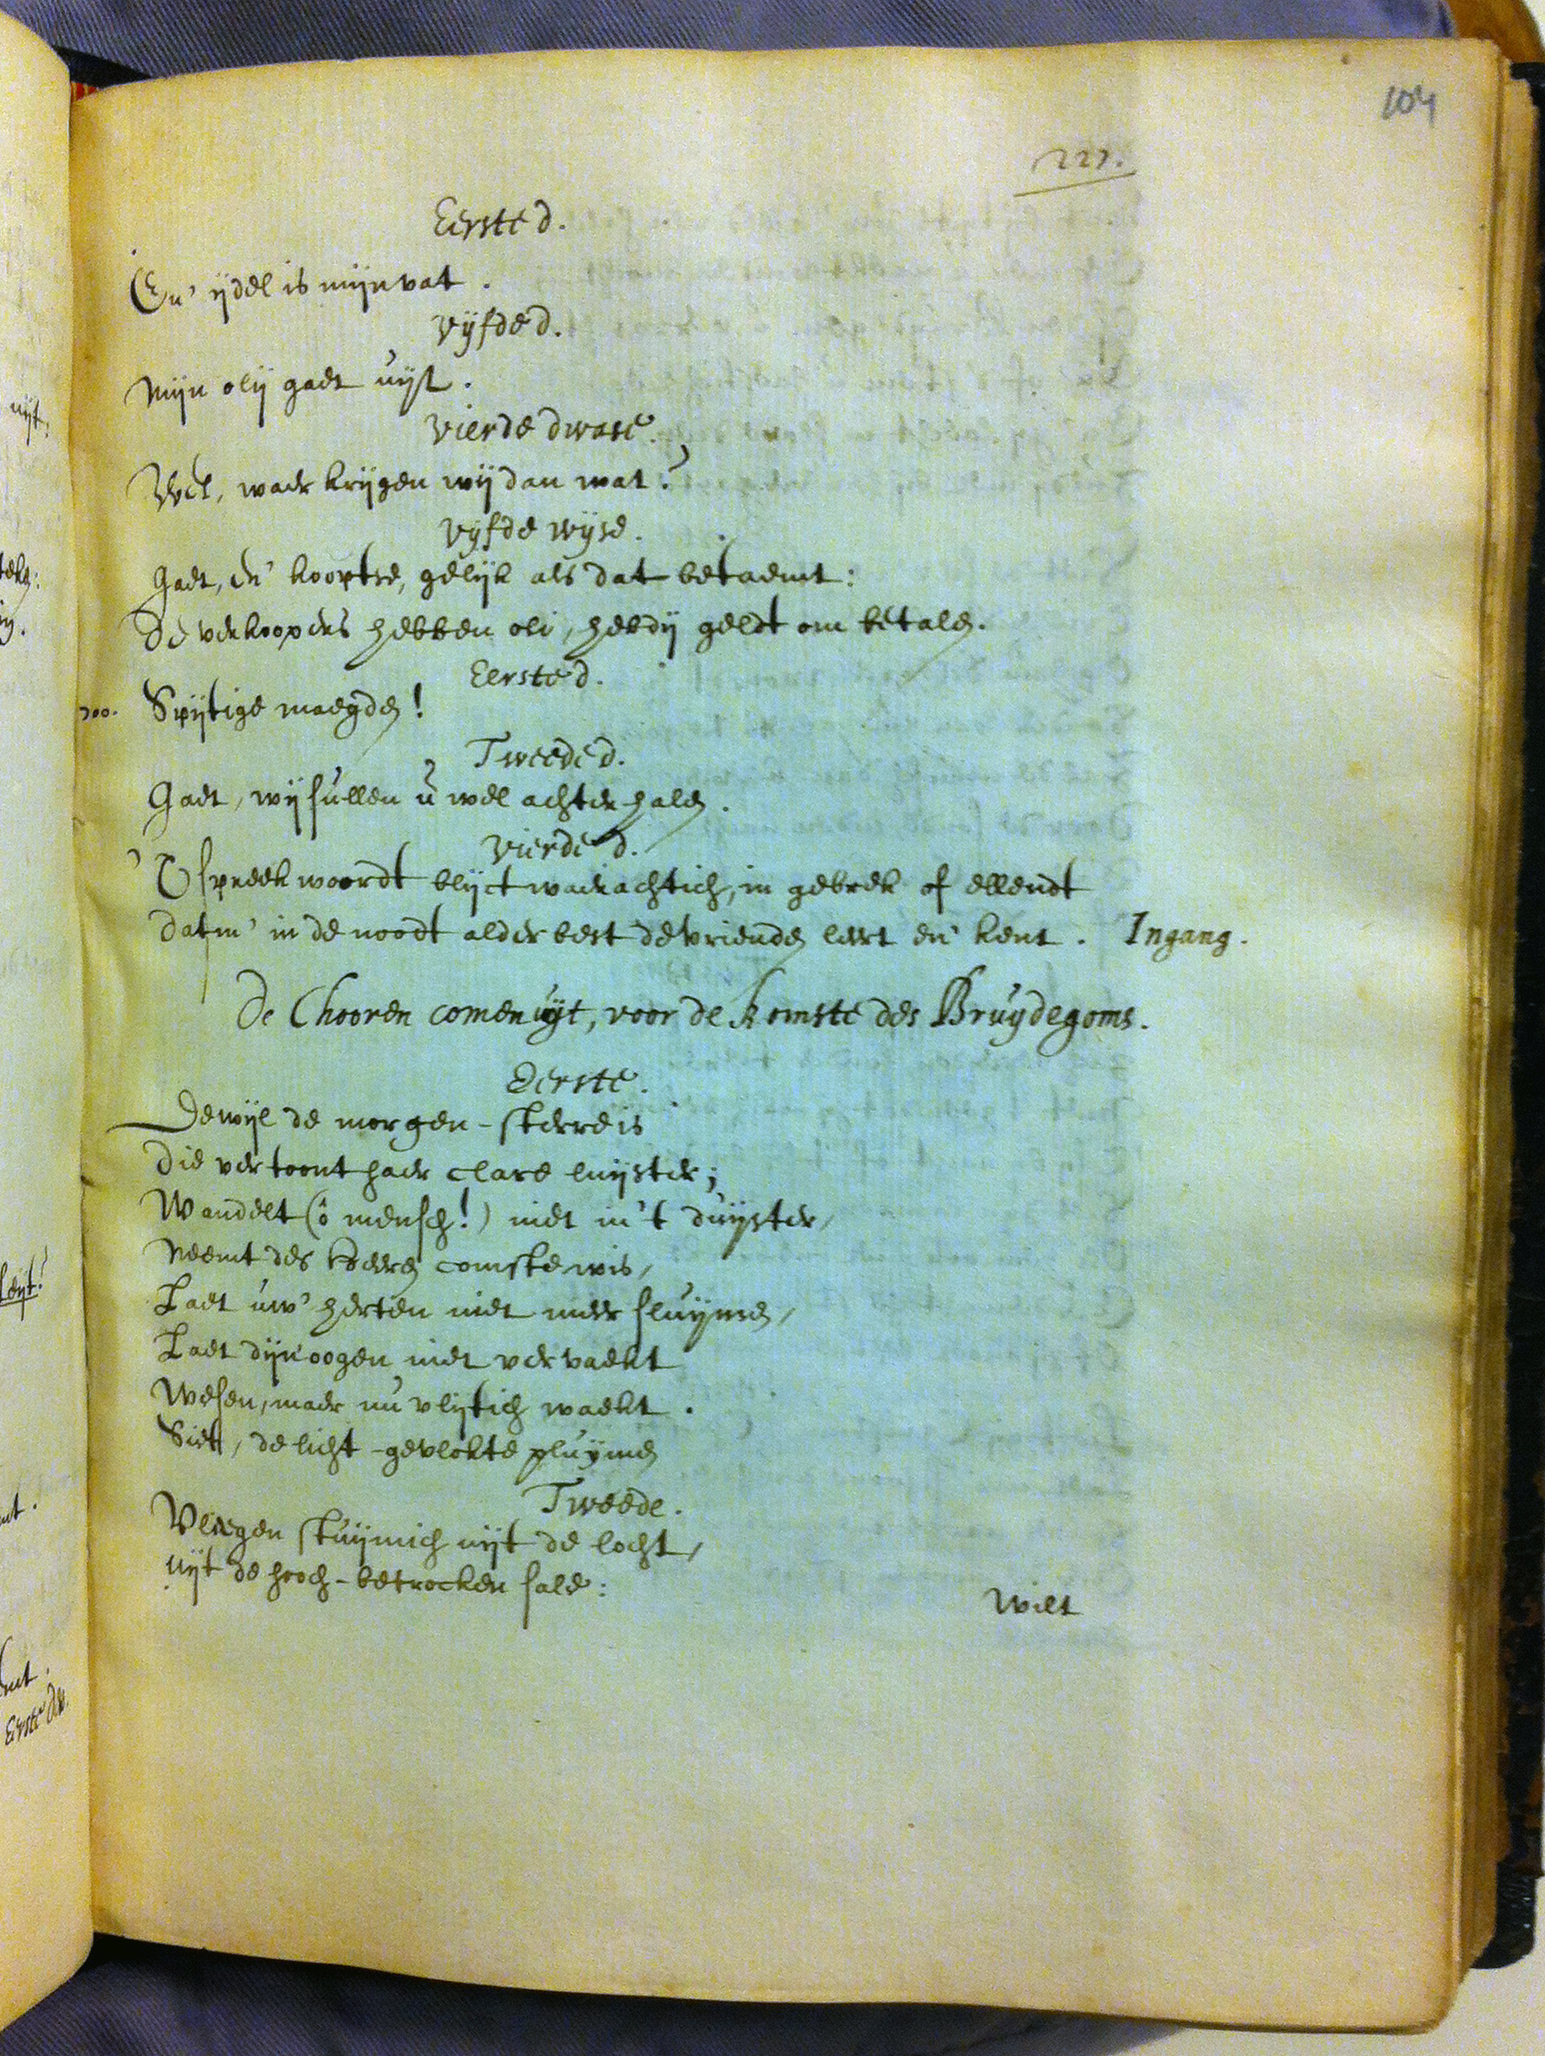 104
227.
Eerste d.
En' ijdel is mijn vat.
Vijfde d.
Mijn olij gaet uijt.
Vierde dwase.
Wel, waer krijgen wij dan wat?
Vijfde wijse.
Gaet, en' kooptse, gelijk als dat betaemt:
De verkoopers hebben oli, hebdij geldt om betalen.
Eerste d.
700. Spijtige maegden!
Tweede d.
Gaet, wij sullen u wel achterhalen.
Vierde d.
'T spreekwoordt blijct waerachtich, in gebrek of ellendt
Datm' in de noodt alderbest de vrienden leert en' kent. Ingang.
De Chooren comen uijt, voor de komste des Bruijdegoms.
Eerste.
Dewijl de morgen-sterre is
Die vertoont haer clare luijster;
Wandelt (ô mensch!) niet in't duijster,
Neemt des Heeren comste wis,
Laet uw' herten niet meer sluijmen,
Laet dijn oogen niet vervaekt
Wesen, maer nu vlijtich waekt.
Siet, de licht-gevlokte pluijmen
Tweede.
Vliegen stuijmich uijt de locht,
Uijt de hooch-betrocken sale:
Wilt
uijt:
Eerste